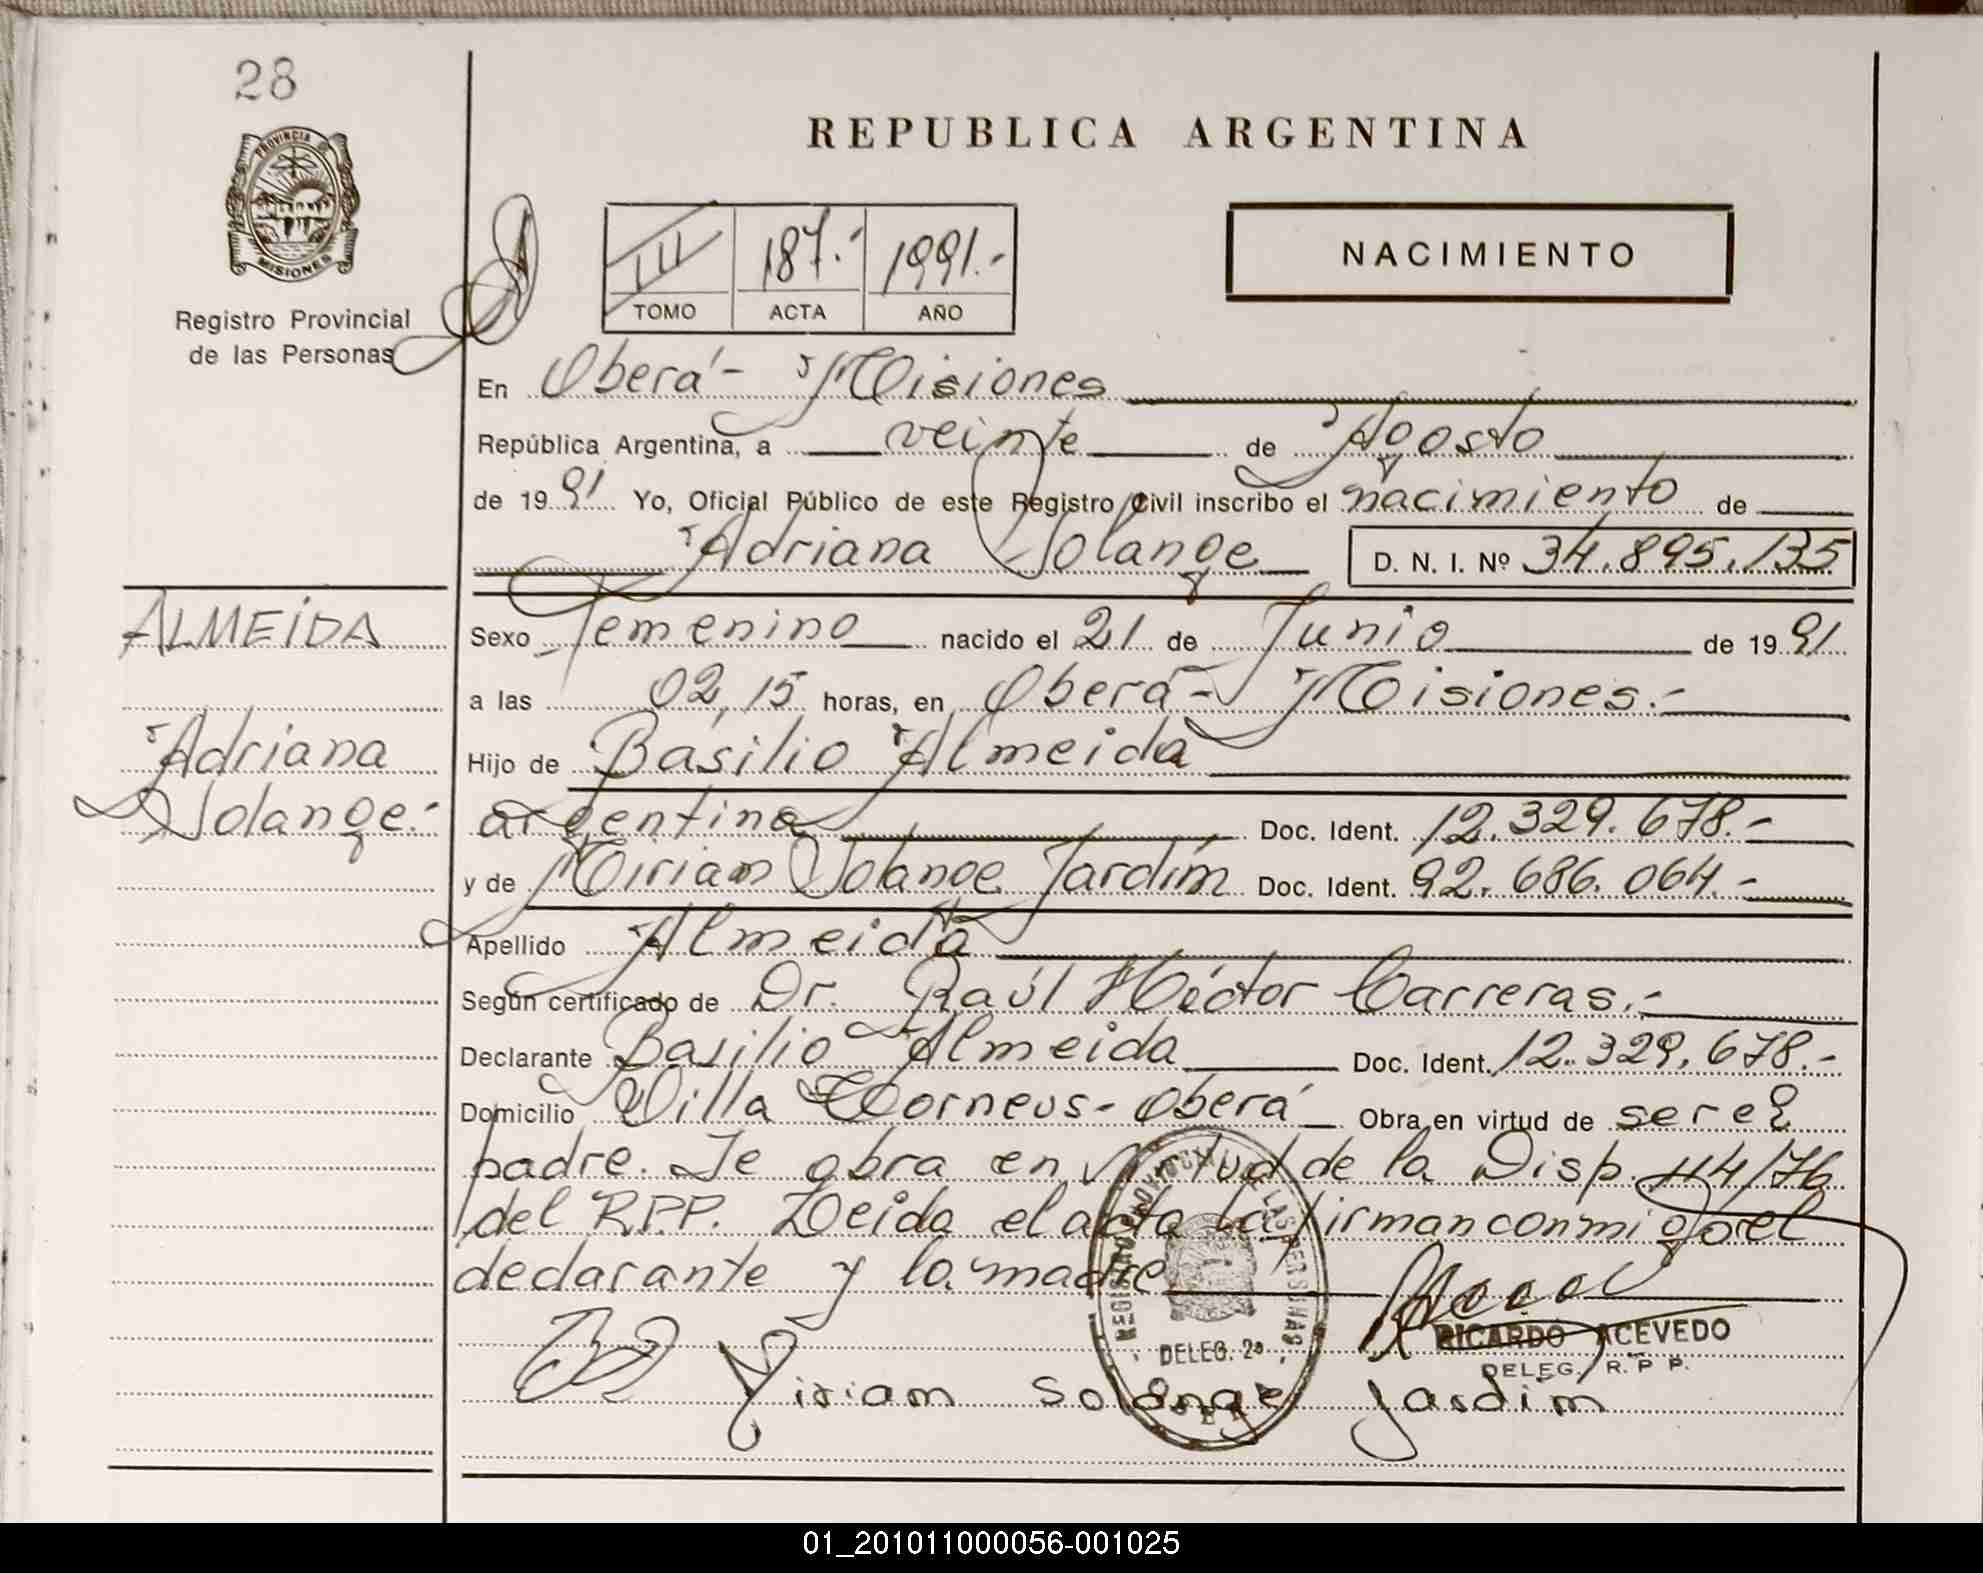 28
REPUBLICA ARGENTINA
PROVINCIA
MISIONES
Registro Provincial
de las Personas
III 187.- 1991.-
TOMO ACTA AÑO
NACIMIENTO
En Oberá - Misiones
República Argentina, a veinte de Agosto
de 1991 Yo, Oficial Público de este Registro Civil inscribo el nacimiento de
Adriana Solange D. N. I. Nº 34.895.135
ALMEIDA
Adriana
Solange.-
Sexo Femenino nacido el 21 de Junio de 1991
a las 02,15 horas, en Oberá - Misiones.-
Hijo de Basilio Almeida
argentina Doc. Ident. 12.329.678.-
y de Miriam Solange Jardím Doc. Ident. 92.686.064.-
Apellido Almeida
Según certificado de Dr. Raúl Héctor Carreras.-
Declarante Basilio Almeida Doc. Ident. 12.329.678.-
Domicilio Villa - Oberá Obra en virtud de ser el
padre. Se obra en virtud de la Disp. 114/76
del R.P.P. Leida el acta la firman conmigo el
declarante y la madre
REGISTRO PROVINCIAL DE LAS PERSONAS
DELEG. 2ª
RICARDO ACEVEDO
DELEG. R. P. P.
Miriam Solange Jardim
01_201011000056-001025